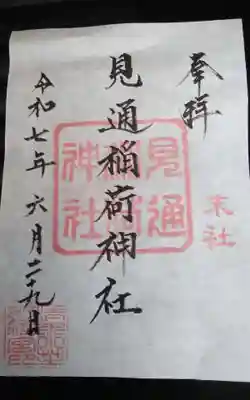 奉拝
末社
見通稲荷神社
見通稲荷神社
令和七年 六月二十九日